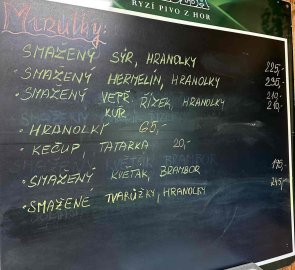 RYZÍ PIVO Z HOR
Minutky:
SMAŽENÝ SÝR, HRANOLKY 225,-
SMAŽENÝ HERMELÍN, HRANOLKY 235,-
• SMAŽENÝ VEPŘ. ŘÍZEK, HRANOLKY 210,-
KUŘ. 210,-
• HRANOLKY 65,-
• KEČUP, TATARKA 20,-
• SMAŽENÝ KVĚTÁK, BRAMBOR 195,-
• SMAŽENÉ TVARŮŽKY, HRANOLKY